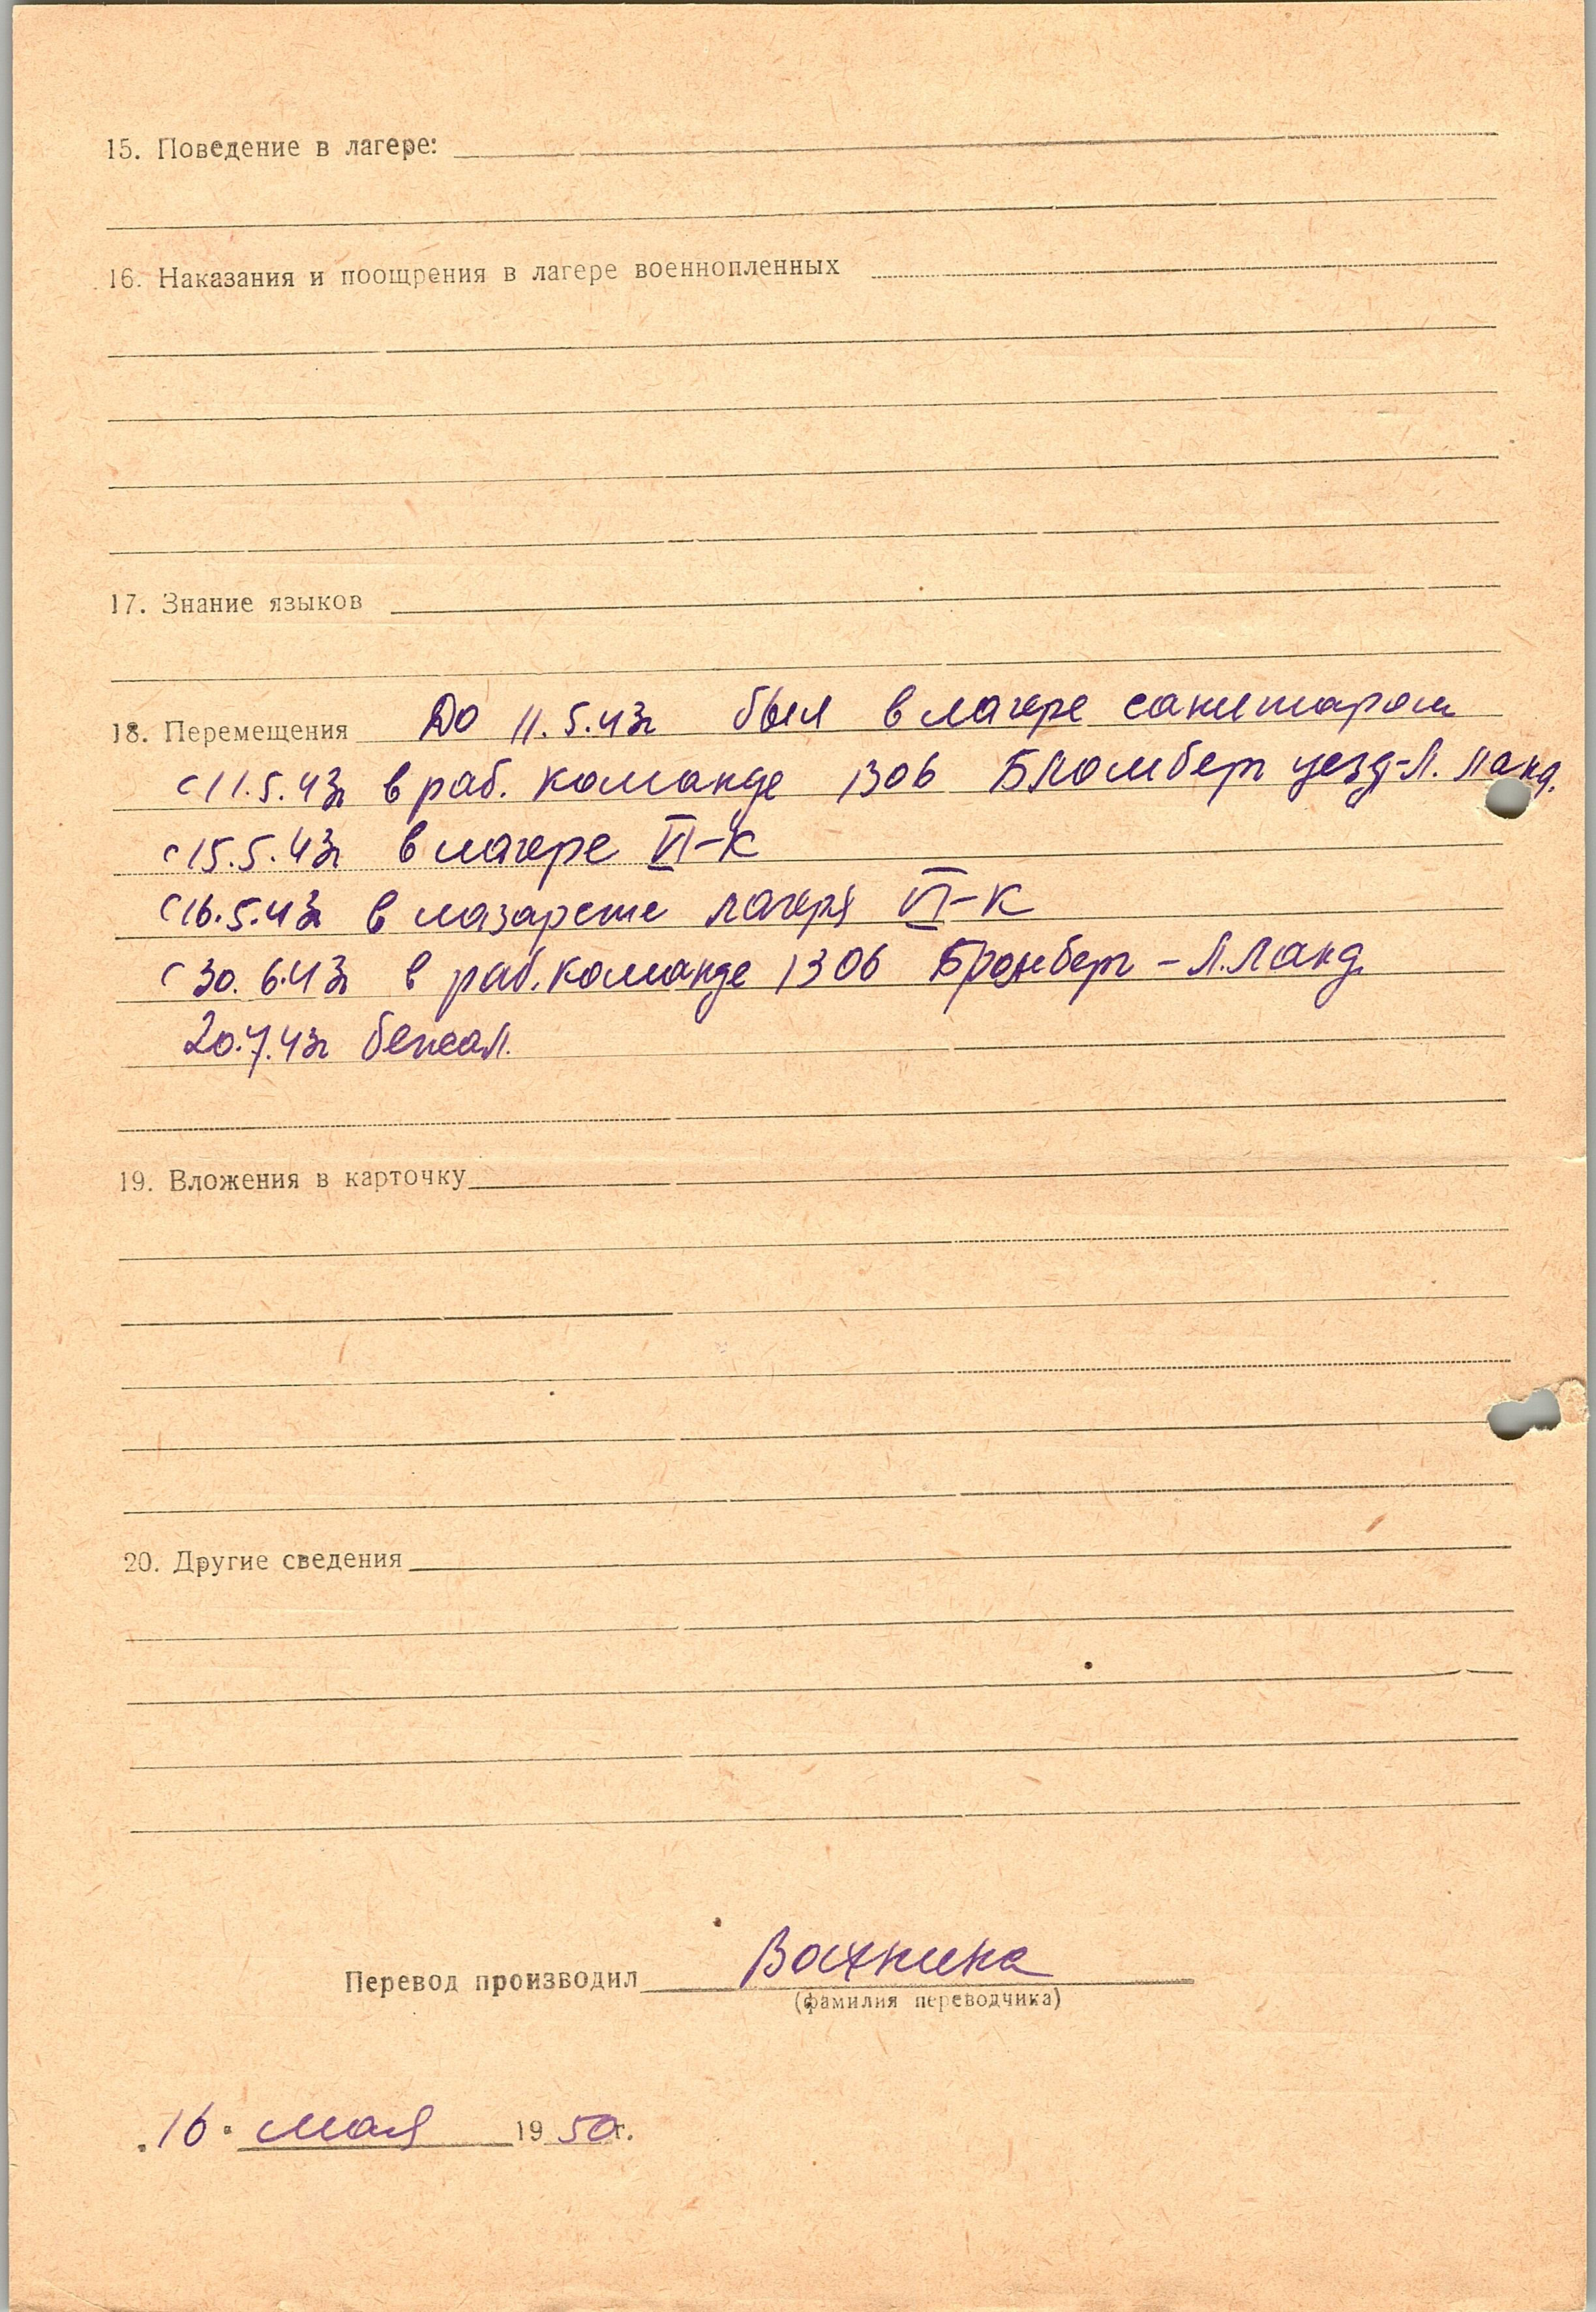 15. Поведение в лагере:
16. Наказания и поощрения в лагере военнопленных
17. Знание языков
18. Перемещения До 11.5.43г был в лагере санитаром
с 11.5.43г в раб. команде 1306 Бломберг уезд-Л. Ланд.
с 15.5.43г в лагере VI-К
с 16.5.43г в лазарете лагеря VI-К
с 30.6.43г в раб. команде 1306 Бромберг - Л. Ланд.
20.7.43г бежал.
19. Вложения в карточку
20. Другие сведения
Перевод производил
(фамилия переводчика)
"16" мая 1950г.